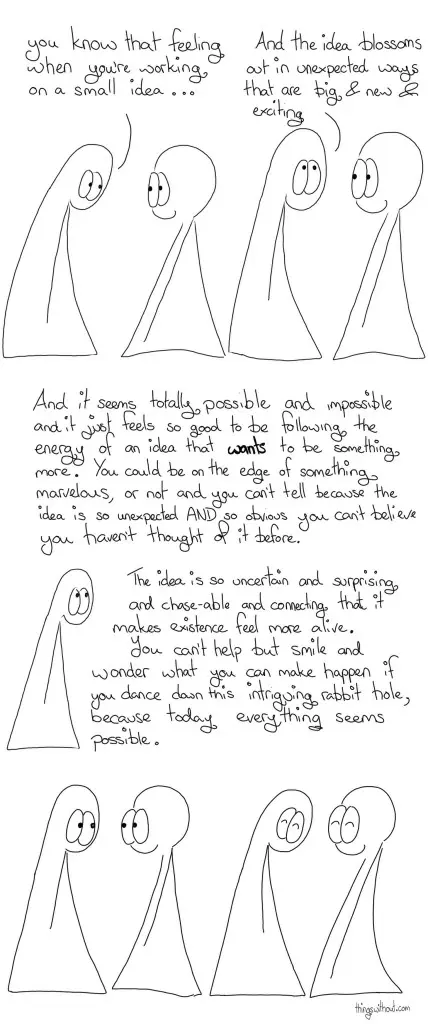 you know that feeling
when you're working
on a small idea...
And the idea blossoms
out in unexpected ways
that are big & new &
exciting
And it seems totally possible and impossible
and it just feels so good to be following the
energy of an idea that wants to be something
more. You could be on the edge of something
marvelous, or not and you can't tell because the
idea is so unexpected AND so obvious you can't believe
you haven't thought of it before.
The idea is so uncertain and surprising
and chase-able and connecting that it
makes existence feel more alive.
You can't help but smile and
wonder what you can make happen if
you dance down this intriguing rabbit hole,
because today everything seems
possible.
thingswithout.com